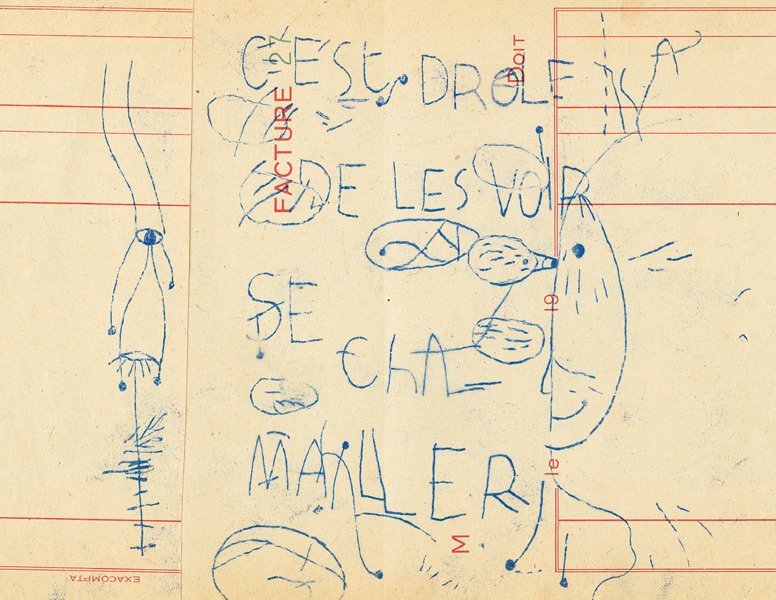 C'EST DROLE
DE LES VOIR
SE
CHA
MAILLER
FACTURE
27
DOIT
19
le
M
EXACOMPTA